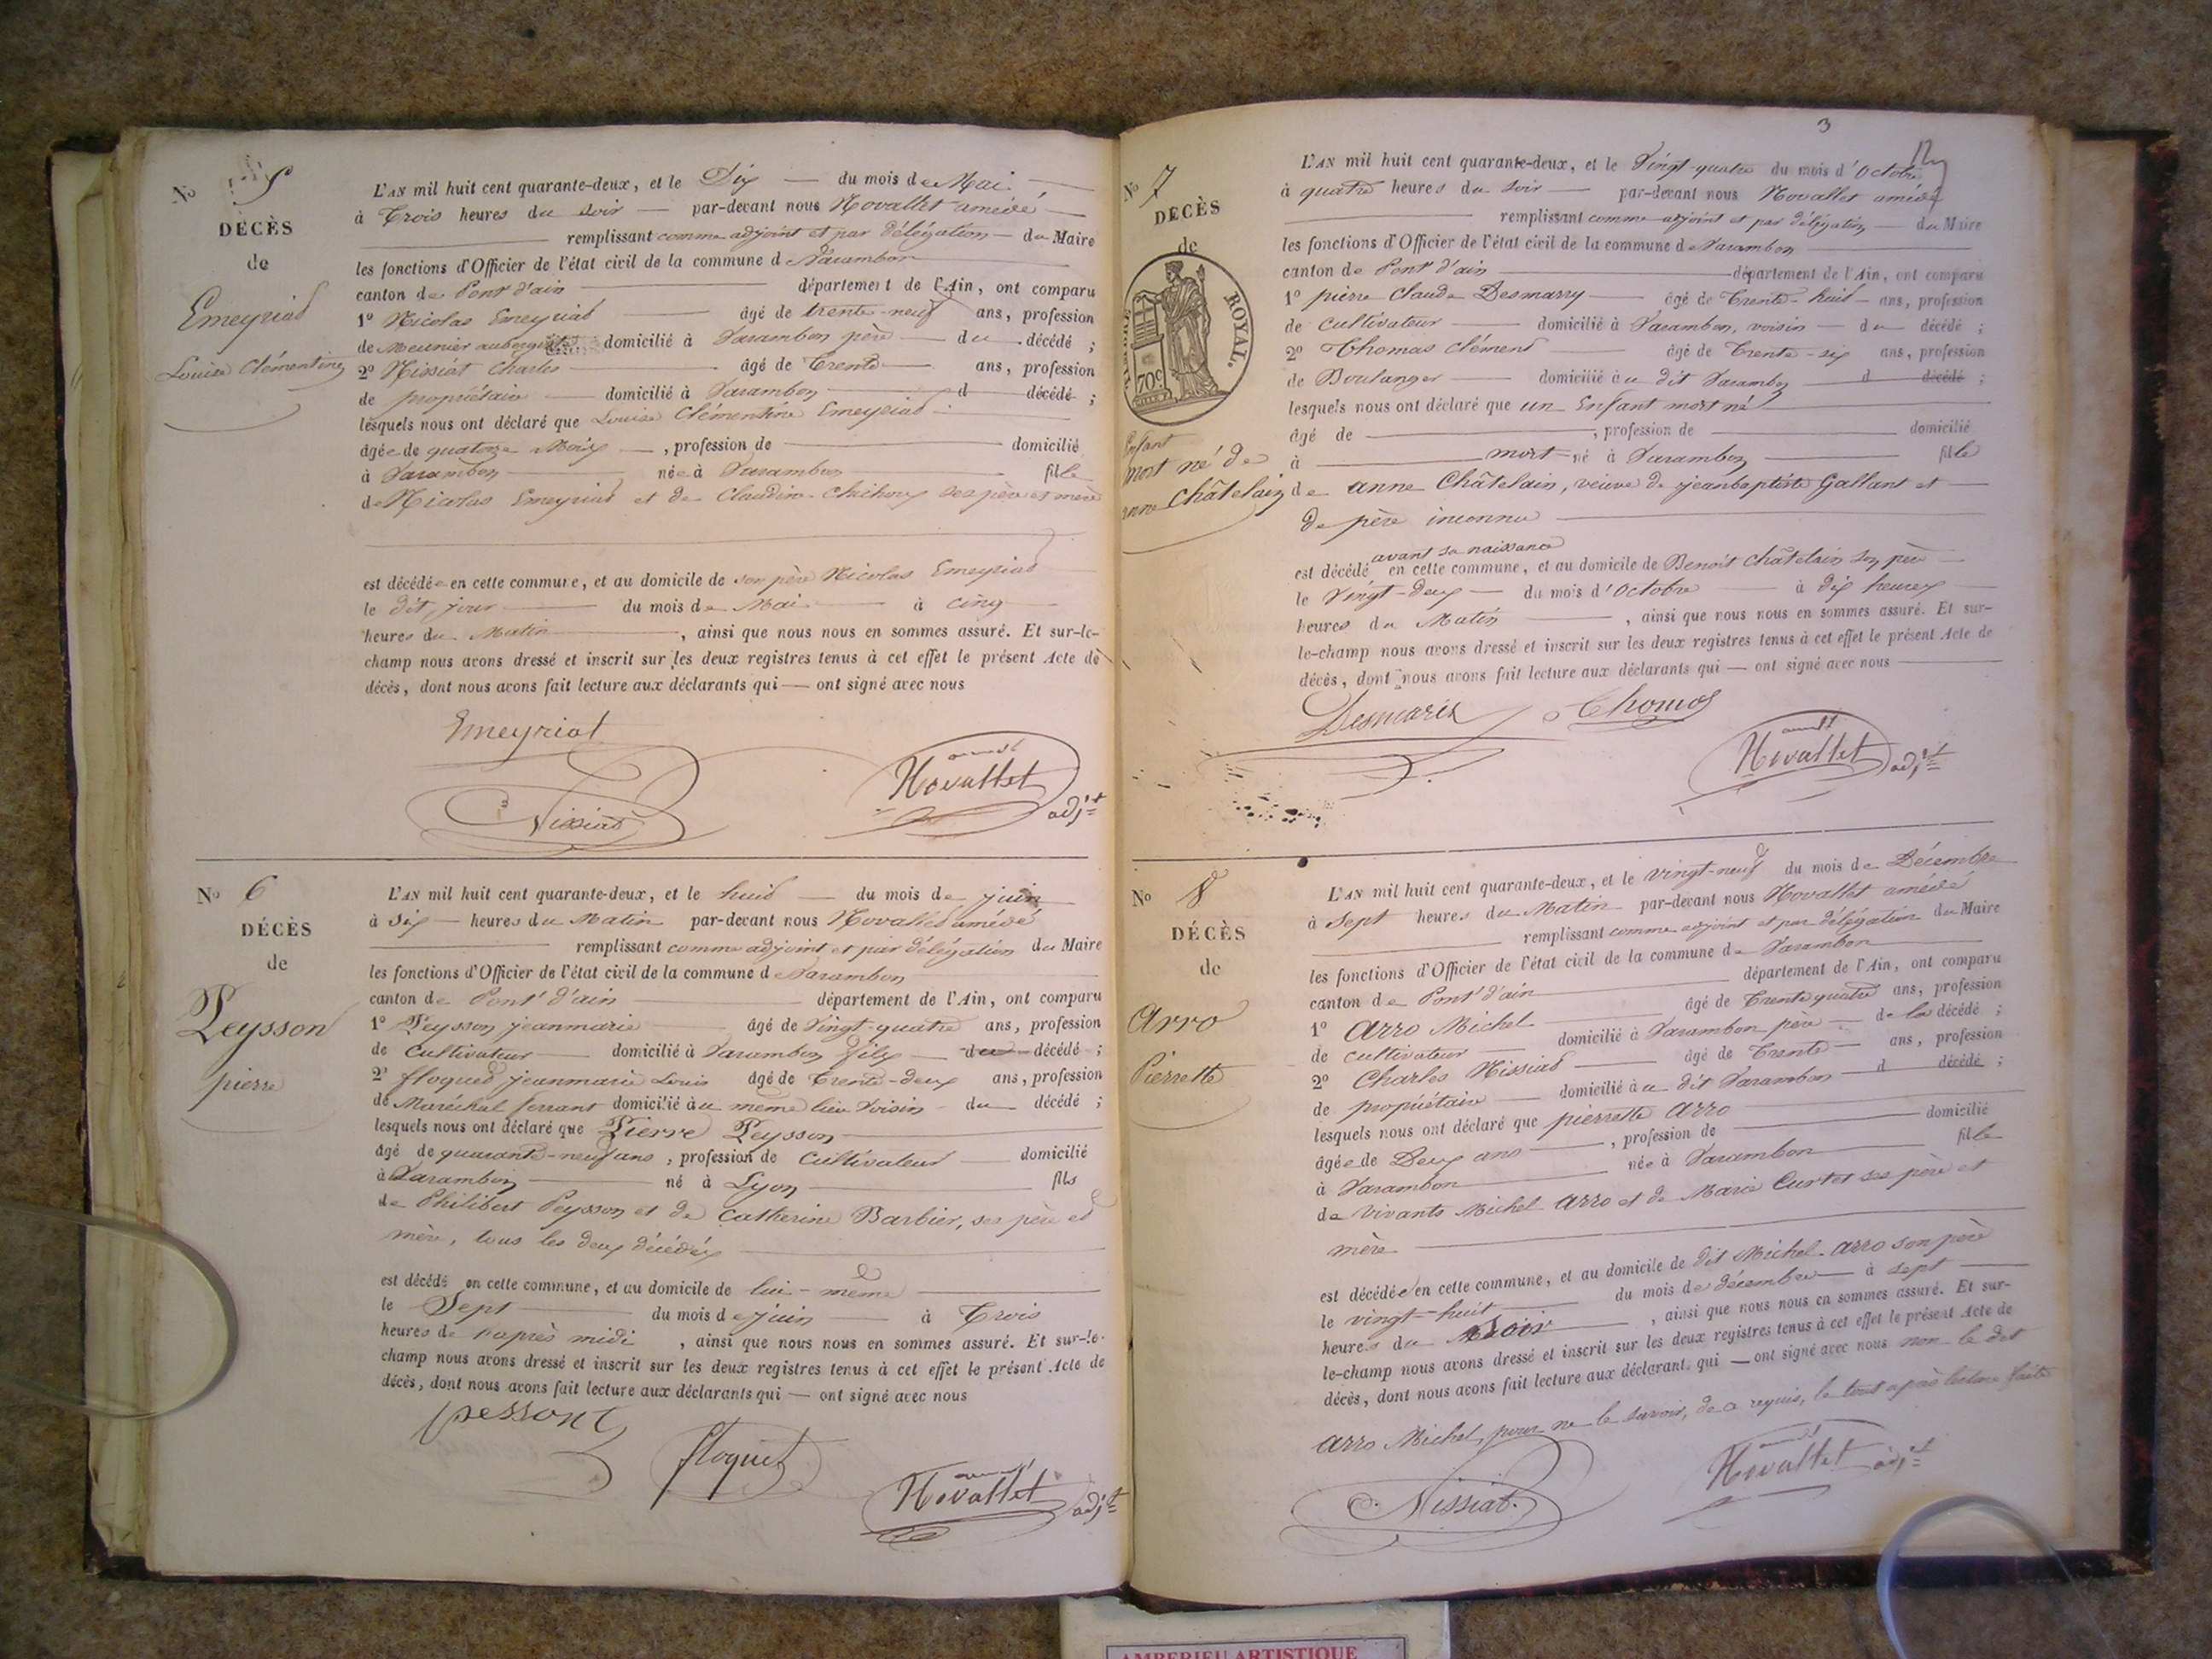 N° 5
DÉCÈS
de
Emeyriat
Louise Clémentine
L'AN mil huit cent quarante-deux, et le Dix du mois de Mai
à Trois heures du soir par-devant nous Novallet amédé
remplissant comme adjoint et par délégation du Maire
les fonctions d'Officier de l'état civil de la commune de Varambon
canton de Pont d'ain département de l'Ain, ont comparu
1° Nicolas Emeyriat âgé de trente-neuf ans, profession
de Meunier aubergiste domicilié à Varambon père du décédé ;
2° Nissiat Charles âgé de Trente ans, profession
de propriétaire domicilié à Varambon d décédé ;
lesquels nous ont déclaré que Louise Clémentine Emeyriat
âgée de quatorze Mois , profession de domicilié
à Varambon née à Varambon fille
de Nicolas Emeyriat et de Claudine ses père et mère
est décédée en cette commune, et au domicile de son père Nicolas Emeyriat
le dit jour du mois de Mai à cinq
heures du Matin , ainsi que nous nous en sommes assuré. Et sur-le-
champ nous avons dressé et inscrit sur les deux registres tenus à cet effet le présent Acte de
décès, dont nous avons fait lecture aux déclarants qui — ont signé avec nous
Emeyriat
Nissiat
amédé
Novallet adjt
N° 6
DÉCÈS
de
Peysson
pierre
L'AN mil huit cent quarante-deux, et le huit du mois de juin
à six heures du Matin par-devant nous Novallet amédé
remplissant comme adjoint et par délégation du Maire
les fonctions d'Officier de l'état civil de la commune de Varambon
canton de Pont d'ain département de l'Ain, ont comparu
1° Peysson jeanmarie âgé de Vingt-quatre ans, profession
de Cultivateur domicilié à Varambon fils du décédé ;
2° floquet jeanmarie Louis âgé de Trente-deux ans, profession
de Maréchal ferrant domicilié au même lieu Voisin du décédé ;
lesquels nous ont déclaré que Pierre Peysson
âgé de quarante-neuf ans , profession de Cultivateur domicilié
à Varambon né à Lyon fils
de Philibert Peysson et de Catherine Barbier, ses père et
mère, tous les deux décédés
est décédé en cette commune, et au domicile de lui-même
le Sept du mois de juin à Trois
heures de l'après midi , ainsi que nous nous en sommes assuré. Et sur-le-
champ nous avons dressé et inscrit sur les deux registres tenus à cet effet le présent Acte de
décès, dont nous avons fait lecture aux déclarants qui — ont signé avec nous
pessont
floquet
amédé
Novallet adjt
3
N° 7
DÉCÈS
de
TIMBRE ROYAL.
70c
Enfant
mort né de
anne Châtelain
L'AN mil huit cent quarante-deux, et le Vingt-quatre du mois d'Octobre
à quatre heures du soir par-devant nous Novallet amédé
remplissant comme adjoint et par délégation du Maire
les fonctions d'Officier de l'état civil de la commune de Varambon
canton de Pont d'ain département de l'Ain, ont comparu
1° pierre Claude Desmarry âgé de Trente-huit ans, profession
de Cultivateur domicilié à Varambon, voisin du décédé ;
2° Thomas Clément âgé de Trente-six ans, profession
de Boulanger domicilié au dit Varambon d décédé ;
lesquels nous ont déclaré que un Enfant mort né
âgé de , profession de domicilié
à mort-né à Varambon fille
de anne Châtelain, veuve de jeanbaptiste Gallant et
de père inconnu
avant sa naissance
est décédé en cette commune, et au domicile de Benoit Châtelain son père
le Vingt-deux du mois d'Octobre à dix heures
heures du Matin , ainsi que nous nous en sommes assuré. Et sur-
le-champ nous avons dressé et inscrit sur les deux registres tenus à cet effet le présent Acte de
décès, dont nous avons fait lecture aux déclarants qui — ont signé avec nous
Desmaris Thomas
amédé
Novallet adjt
N° 8
DÉCÈS
de
Arro
Pierrette
L'AN mil huit cent quarante-deux, et le Vingt-neuf du mois de Décembre
à Sept heures du Matin par-devant nous Novallet amédé
remplissant comme adjoint et par délégation du Maire
les fonctions d'Officier de l'état civil de la commune de Varambon
canton de Pont d'ain département de l'Ain, ont comparu
1° Arro Michel âgé de Trente quatre ans, profession
de cultivateur domicilié à Varambon père de la décédé ;
2° Charles Nissiat âgé de Trente ans, profession
de propriétaire domicilié au dit Varambon d décédé ;
lesquels nous ont déclaré que pierrette Arro
âgée de Deux ans , profession de domicilié
à Varambon née à Varambon fille
de vivants Michel Arro et de Marie Curtet ses père et
mère
est décédée en cette commune, et au domicile de dit Michel Arro son père
le vingt-huit du mois de décembre à sept
heures du soir , ainsi que nous nous en sommes assuré. Et sur-
le-champ nous avons dressé et inscrit sur les deux registres tenus à cet effet le présent Acte de
décès, dont nous avons fait lecture aux déclarants qui — ont signé avec nous non le dit
Arro Michel, pour ne le savoir, de ce requis, le tout après lecture faite
C. Nissiat.
amédé
Novallet adjt
AMBERIEU ARTISTIQUE